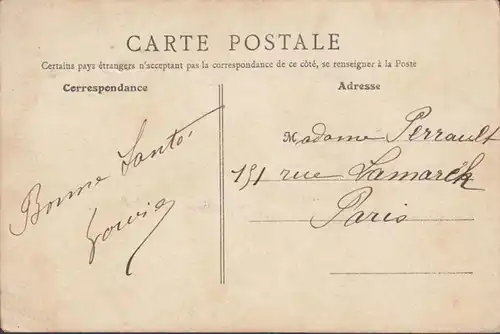 CARTE POSTALE
Certains pays étrangers n'acceptant pas la correspondance de ce côté, se renseigner à la Poste
Correspondance
Adresse
Bonne Santé.
Madame Perrault
151 rue Lamarck
Paris